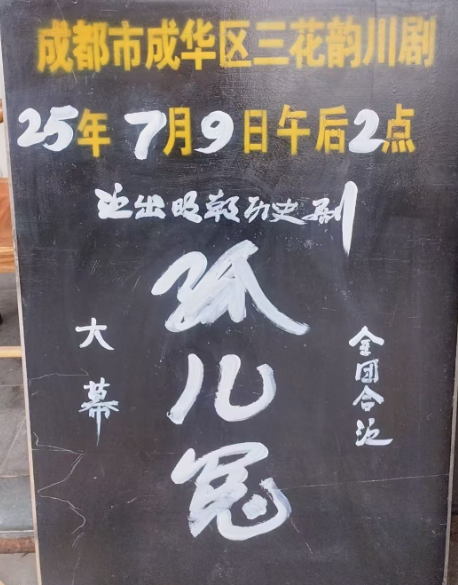 成都市成华区三花韵川剧
25年7月9日午后2点
演出明朝历史剧
孤儿冤
大幕
全团合演